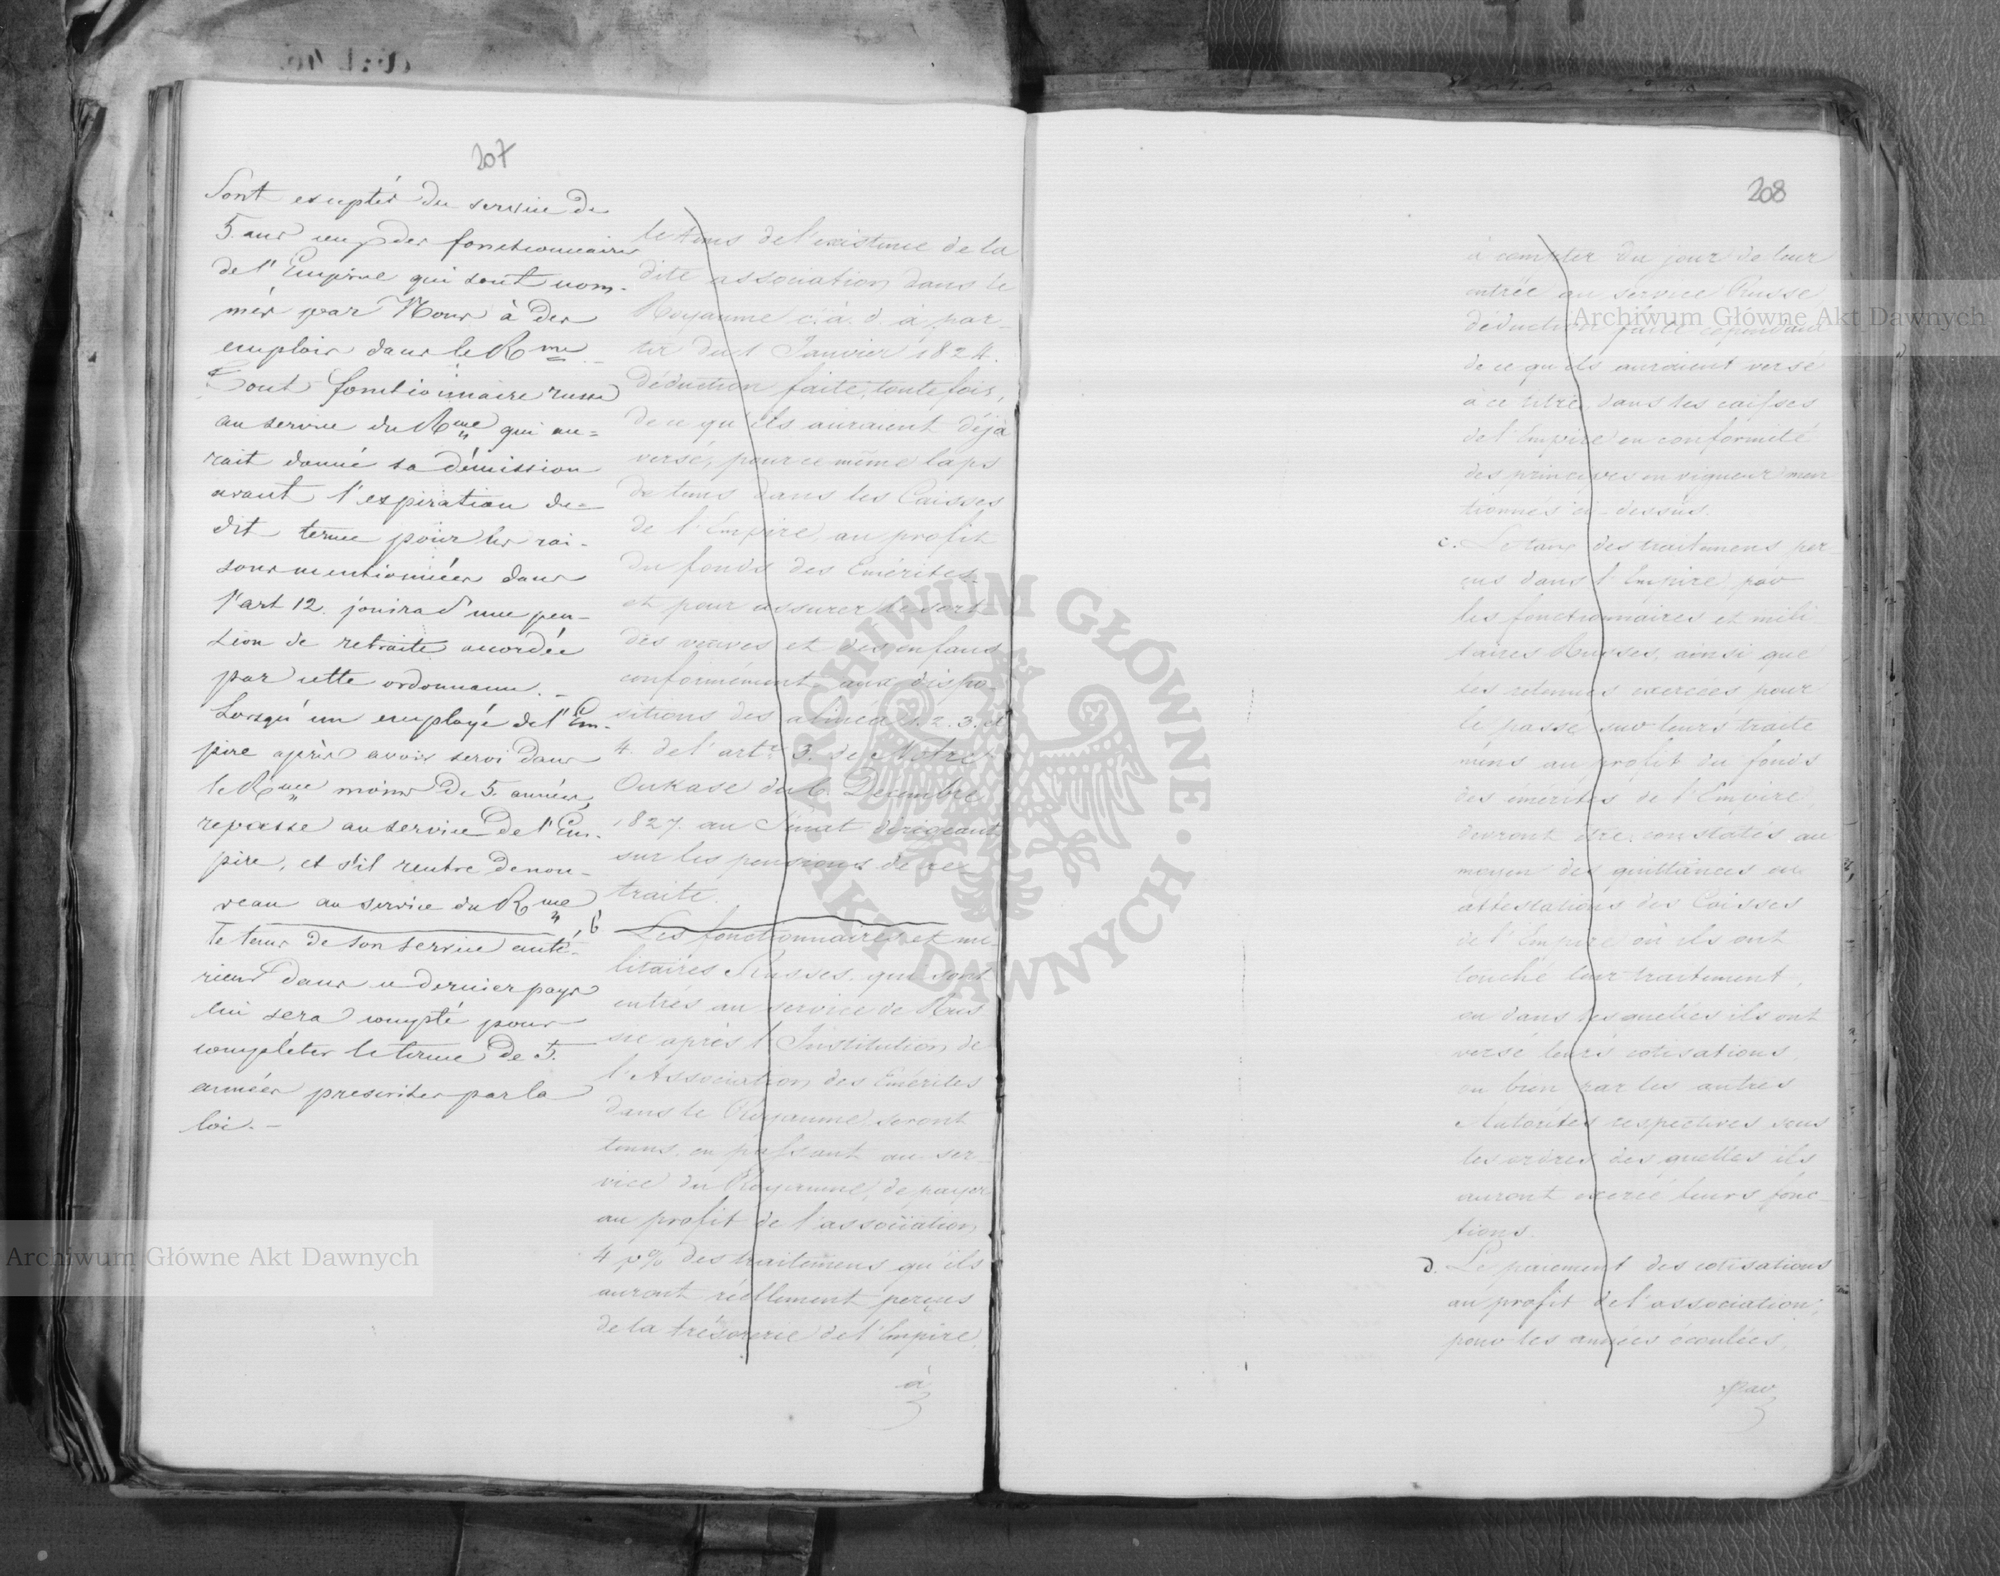 207
Sont exceptés du service de
5. ans ceux des fonctionnaires
de l'Empire qui sont nom-
més par Nous à des
emplois dans le Rme
Tout fonctionnaire russe
au service du Rme qui au=
rait donné sa démission
avant l'expiration du=
dit terme pour les rai-
sons mentionnées dans
l'art 12. jouira d'une pen-
sion de retraite accordée
par cette ordonnance. -
Lorsqu'un employé de l'Em-
pire après avoir servi dans
le Rme moins de 5. années,
repasse au service de l'Em-
pire, et s'il rentre de nou-
veau au service du Rme,
le tems de son service anté-
rieur dans ce dernier pays
lui sera compté pour
compléter le terme de 5.
années prescrites par la
loi. -
le tems de l'existence de la
dite association dans le
Royaume c. à. d. à par-
tir du 1 Janvier 1824.
déduction faite, toutefois,
de ce qu'ils auraient déjà
versé, pour ce même laps
de tems dans les Caisses
de l'Empire, au profit
du fonds des Emérites
et pour assurer le sort
des veuves et des enfans
conformément aux dispo-
sitions des alinéa 1. 2. 3. et
4. de l'art. 3. de Notre
Oukase du 6. Décembre
1827. au Sénat dirigeant
sur les pensions de re-
traite.
b Les fonctionnaires et mi-
litaires Russes, qui sont
entrés au service de Rus
sie après l'Institution de
l'Association des Emérites
dans le Royaume, seront
tenus, en passant au ser-
vice du Royaume, de payer
au profit de l'association
4 p% des traitemens qu'ils
auront réellement perçus
de la trésorerie de l'Empire,
à
208
à compter du jour de leur
entrée au service Russe
déduction faite cependant
de ce qu'ils auraient versé
à ce titre, dans les caisses
de l'Empire en conformité
des principes en vigueur men
tionnés ci-dessus.
c. Le taux des traitemens per-
çus dans l'Empire, par
les fonctionnaires et mili
taires Russes, ainsi que
les retenues exercées pour
le passé sur leurs traite
mens au profit du fonds
des émérites de l'Empire,
devront être constatés au
moyen des quittances ou
attestations des Caisses
de l'Empire où ils ont
touché leur traitement,
ou dans lesquelles ils ont
versé leurs cotisations,
ou bien par les autres
Autorités respectives sous
les ordres des quelles ils
auront exercé leurs fonc-
tions.
d. Le paiement des cotisations
au profit de l'association,
pour les années écoulées,
par
Archiwum Główne Akt Dawnych
Archiwum Główne Akt Dawnych
ARCHIWUM GŁÓWNE AKT DAWNYCH